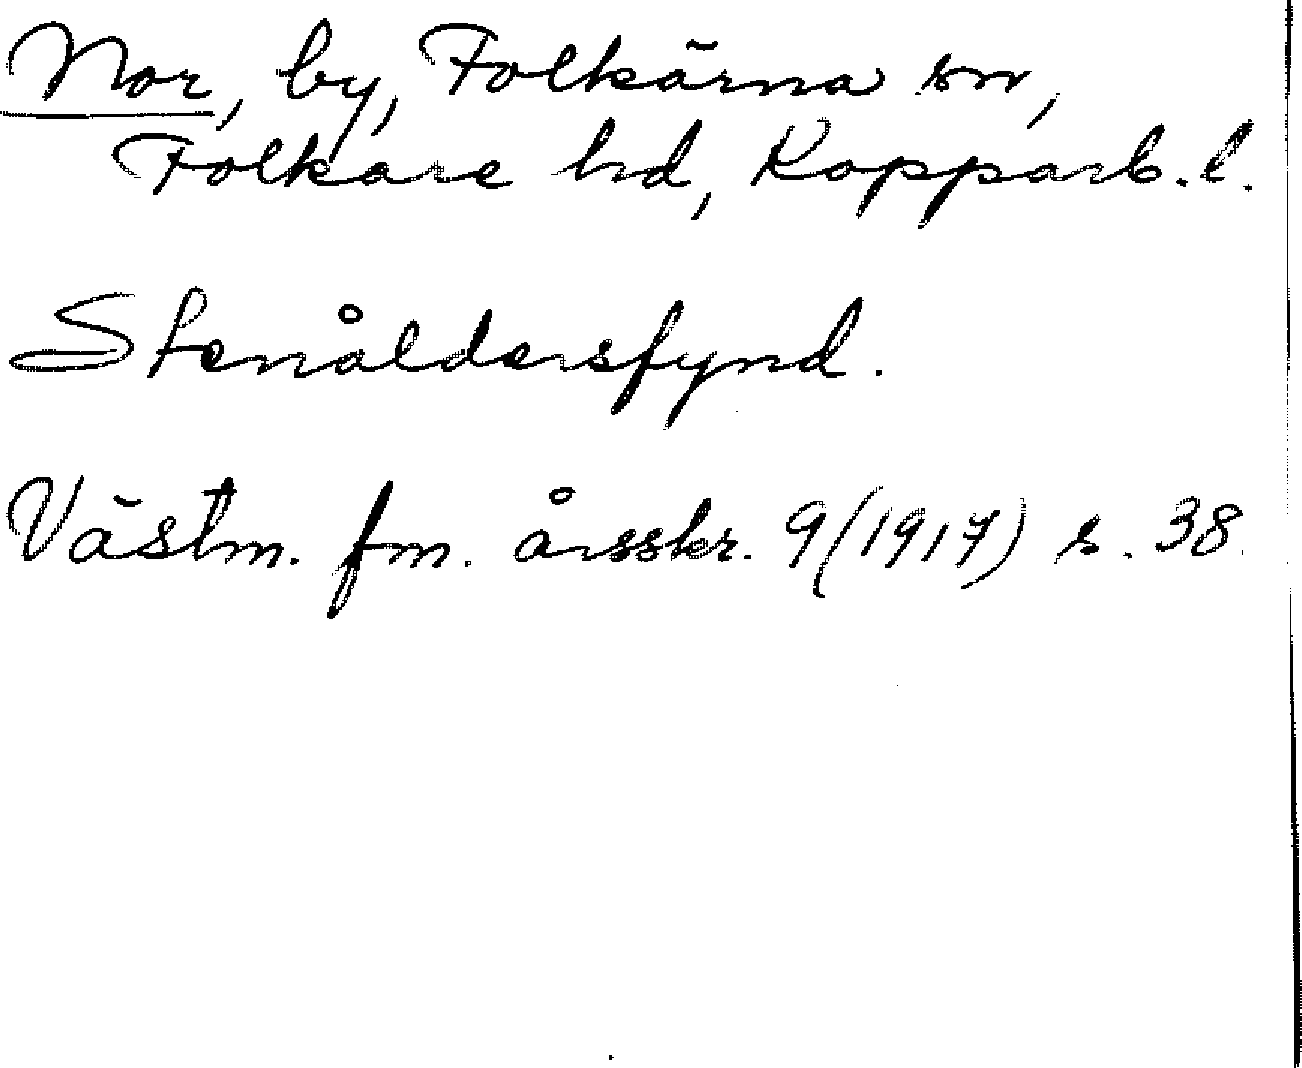 Nor, by, Folkärna sn,
Folkare hd, Kopparb. l.
Stenåldersfynd.
Västm. fm. årsskr. 9 (1917) s. 38.